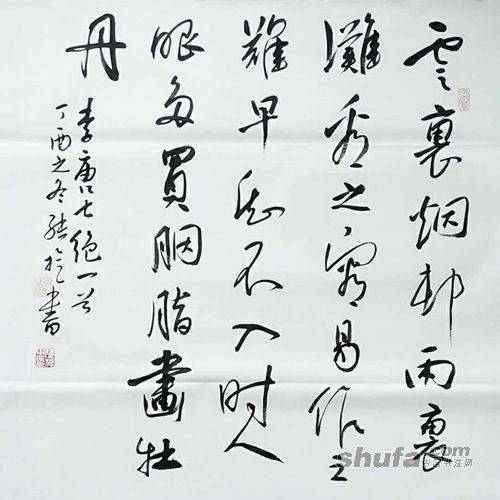 雲裏烟邨雨裏
灘看之容易作之
難早知不入时人
眼多買胭脂畫牡
丹
李唐七絕一首
丁酉之冬書
shufa.com
中国书法网